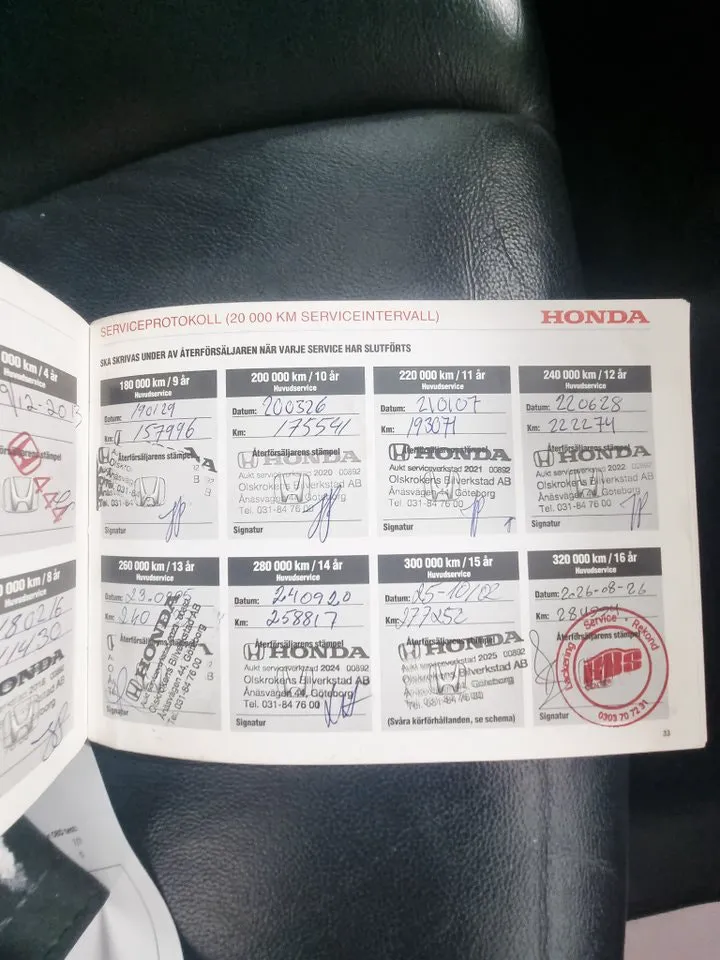 SERVICEPROTOKOLL (20 000 KM SERVICEINTERVALL)
HONDA
SKA SKRIVAS UNDER AV ÅTERFÖRSÄLJAREN NÄR VARJE SERVICE HAR SLUTFÖRTS
000 km / 4 år
Huvudservice
444
km / 8 år
Huvudservice
180216
180 000 km / 9 år
Huvudservice
Datum: 190129
Km: 157996
Återförsäljarens stämpel
Signatur
200 000 km / 10 år
Huvudservice
Datum: 200326
Km: 175541
Återförsäljarens stämpel
HONDA
Aukt serviceverkstad 2020 00892
Olskrokens Bilverkstad AB
Ånäsvägen 44, Göteborg
Tel. 031-84 76 00
Signatur
220 000 km / 11 år
Huvudservice
Datum: 210107
Km: 193071
Återförsäljarens stämpel
HONDA
Aukt serviceverkstad 2021 00892
Olskrokens Bilverkstad AB
Ånäsvägen 44, Göteborg
Tel. 031-84 76 00
Signatur
240 000 km / 12 år
Huvudservice
Datum: 220628
Km: 222274
Återförsäljarens stämpel
HONDA
Aukt serviceverkstad 2022 00892
Olskrokens Bilverkstad AB
Ånäsvägen 44, Göteborg
Tel. 031-84 76 00
Signatur
260 000 km / 13 år
Huvudservice
Datum:
Km: 240
Återförsäljarens stämpel
HONDA
Olskrokens Bilverkstad AB
Ånäsvägen 44, Göteborg
Tel. 031-84 76 00
Signatur
280 000 km / 14 år
Huvudservice
Datum: 240920
Km: 258817
Återförsäljarens stämpel
HONDA
Aukt serviceverkstad 2024 00892
Olskrokens Bilverkstad AB
Ånäsvägen 44, Göteborg
Tel. 031-84 76 00
Signatur
300 000 km / 15 år
Huvudservice
Datum: 25-10/02
Km: 277252
Återförsäljarens stämpel
HONDA
Aukt serviceverkstad 2025 00892
Olskrokens Bilverkstad AB
Ånäsvägen 44, Göteborg
Tel. 031-84 76 00
(Svåra körförhållanden, se schema)
320 000 km / 16 år
Huvudservice
Datum:
Km:
Återförsäljarens stämpel
Lackering Service Rekond
0303 70 72 31
Signatur
33